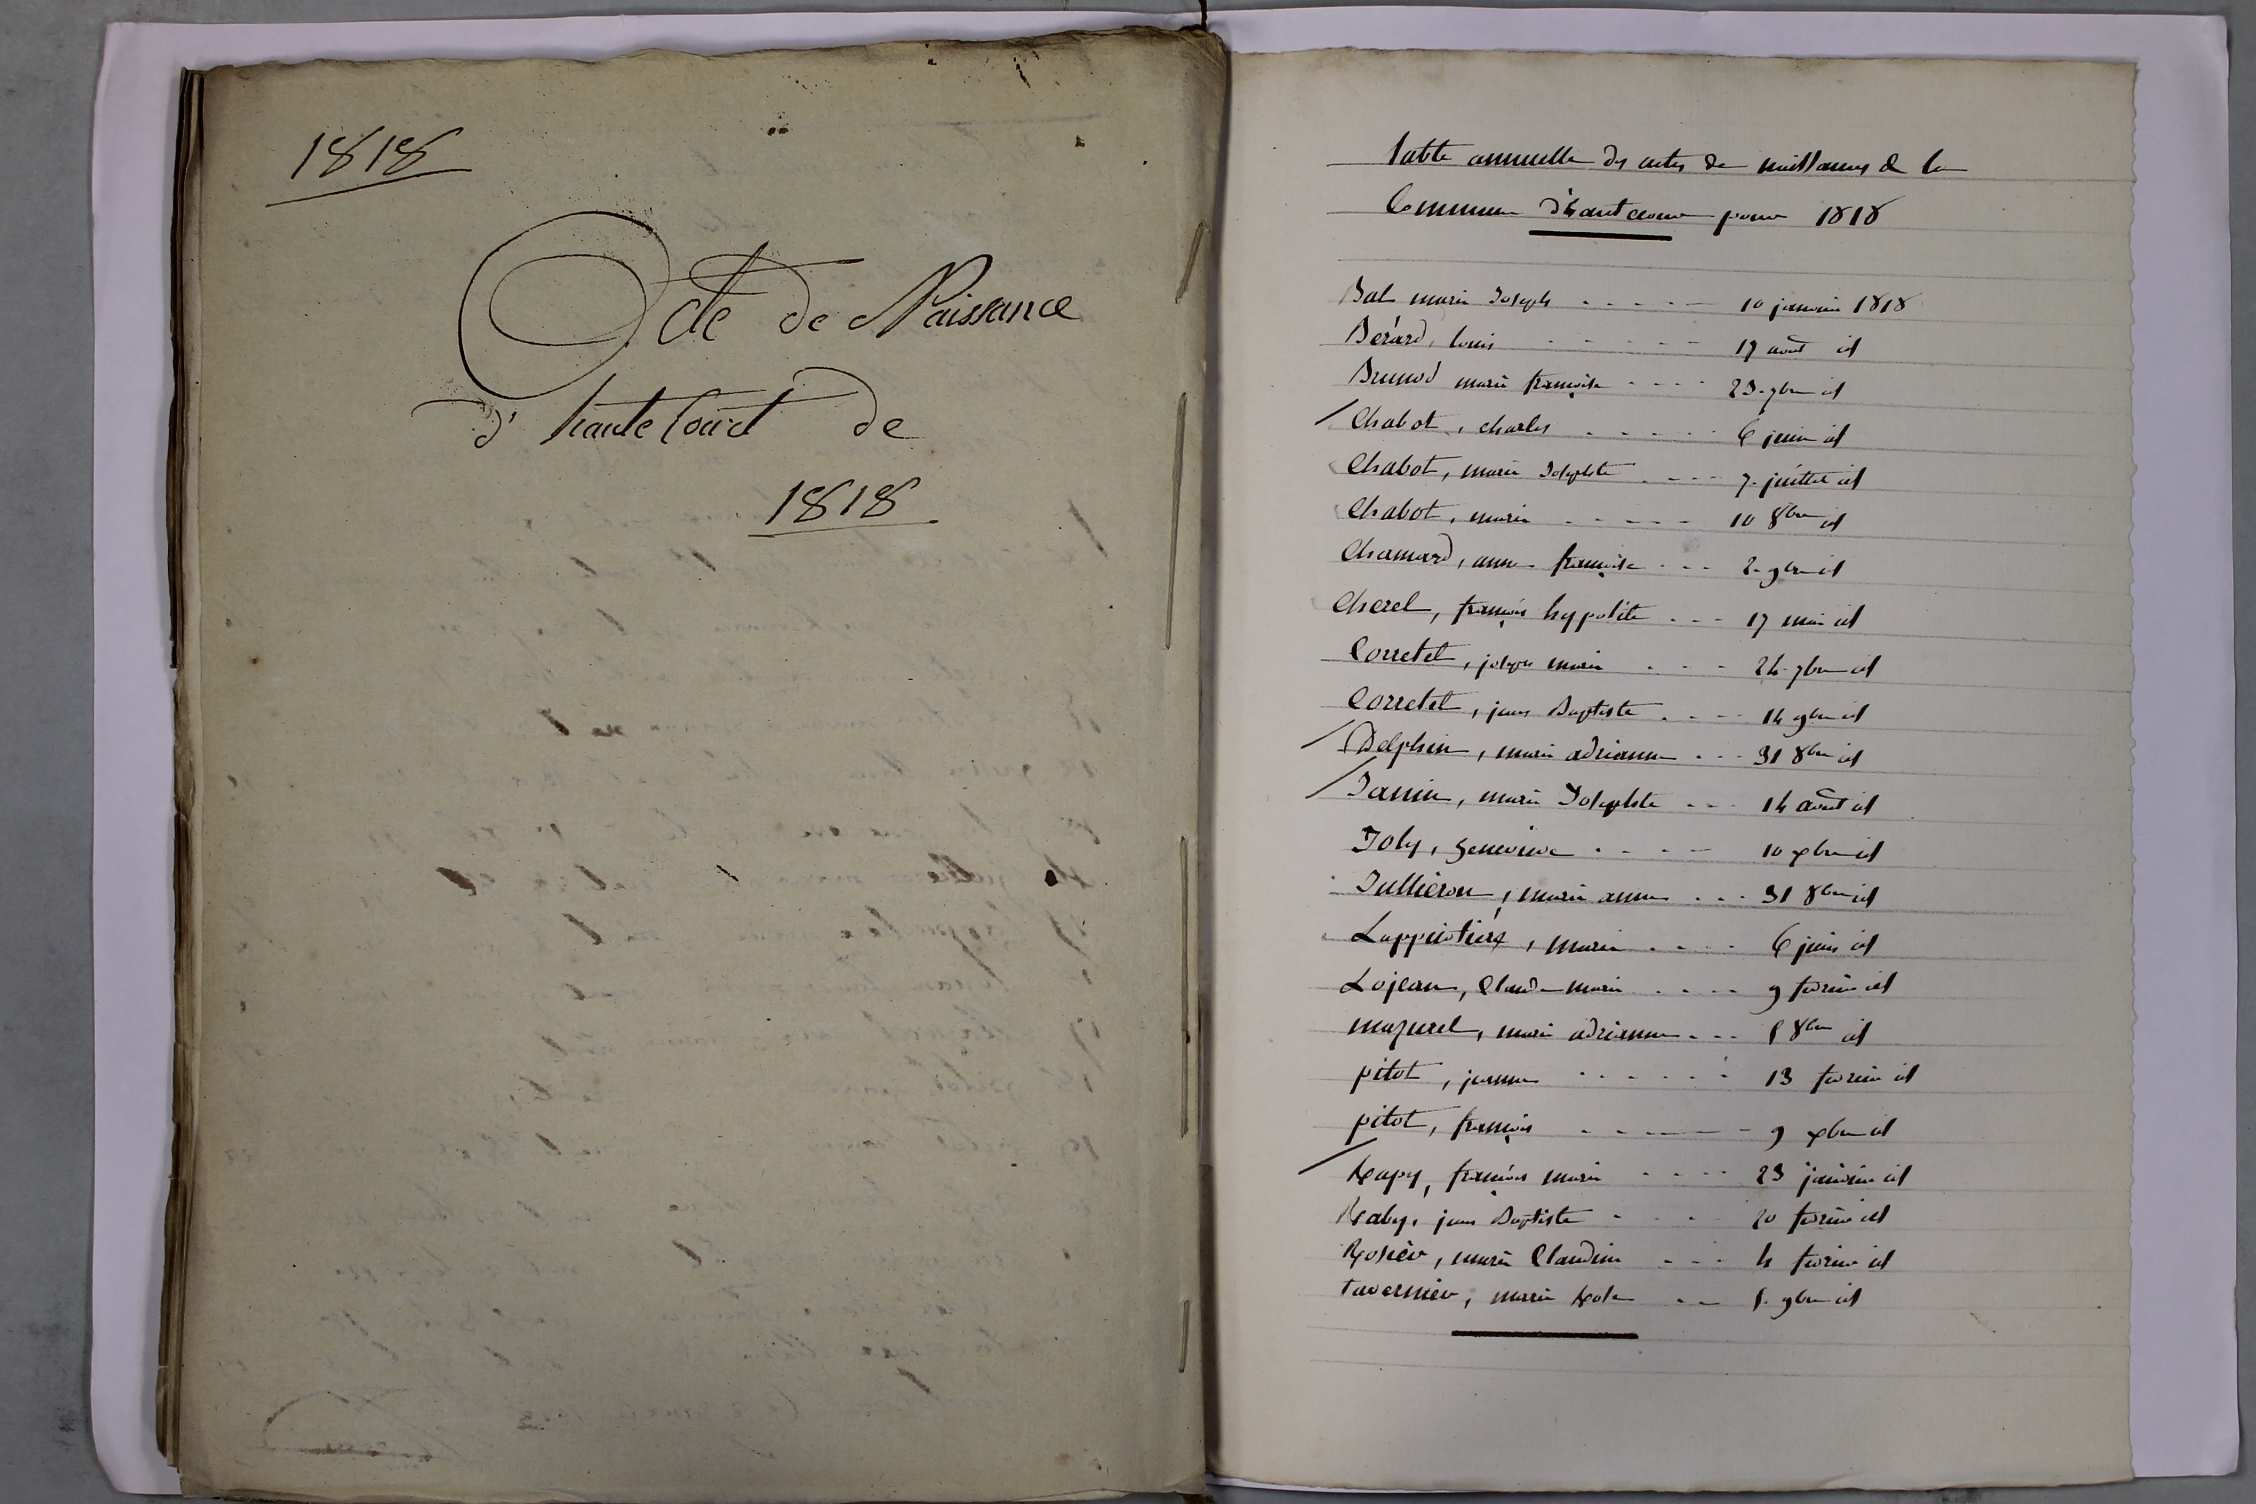 1818
Acte de Naissance
d'haute Court de
1818
table annuelle des actes de naissances de la
Commune d'hautecour pour 1818
Bal marie Joseph - - - - - 10 janvier 1818
Bérard, louis - - - - - 17 août id
Brunod marie françoise - - - - 23. 7bre id
Chabot, charles - - - - - 6 juin id
Chabot, marie Josephte - - - - 7. juillet id
Chabot, marie - - - - - 10 8bre id
Chamard, anne françoise - - - 2. 9bre id
Cherel, françois hypolite - - - 17 mai id
Corretet, joseph marie - - - 24. 7bre id
Corretet, jean Baptiste - - - - 14 9bre id
Delphin, marie adrianne - - - 31 8bre id
Janin, marie Josephte - - - 14 août id
Joly, Genevieve - - - - 10 xbre id
Jullieron, marie anne - - - 31 8bre id
marie - - - - 6 juin id
Lojean, Claude marie - - - - 9 fevrier id
mazurel, marie adrianne - - - 8bre id
pitot, jeanne - - - - - - 13 fevrier id
pitot, françois - - - - - - 9 xbre id
Rapy, françois marie - - - - 23 janvier id
jean Baptiste - - - - 20 fevrier id
Rosier, marie Claudine - - - 4 fevrier id
tavernier, marie Rose - - 9bre id